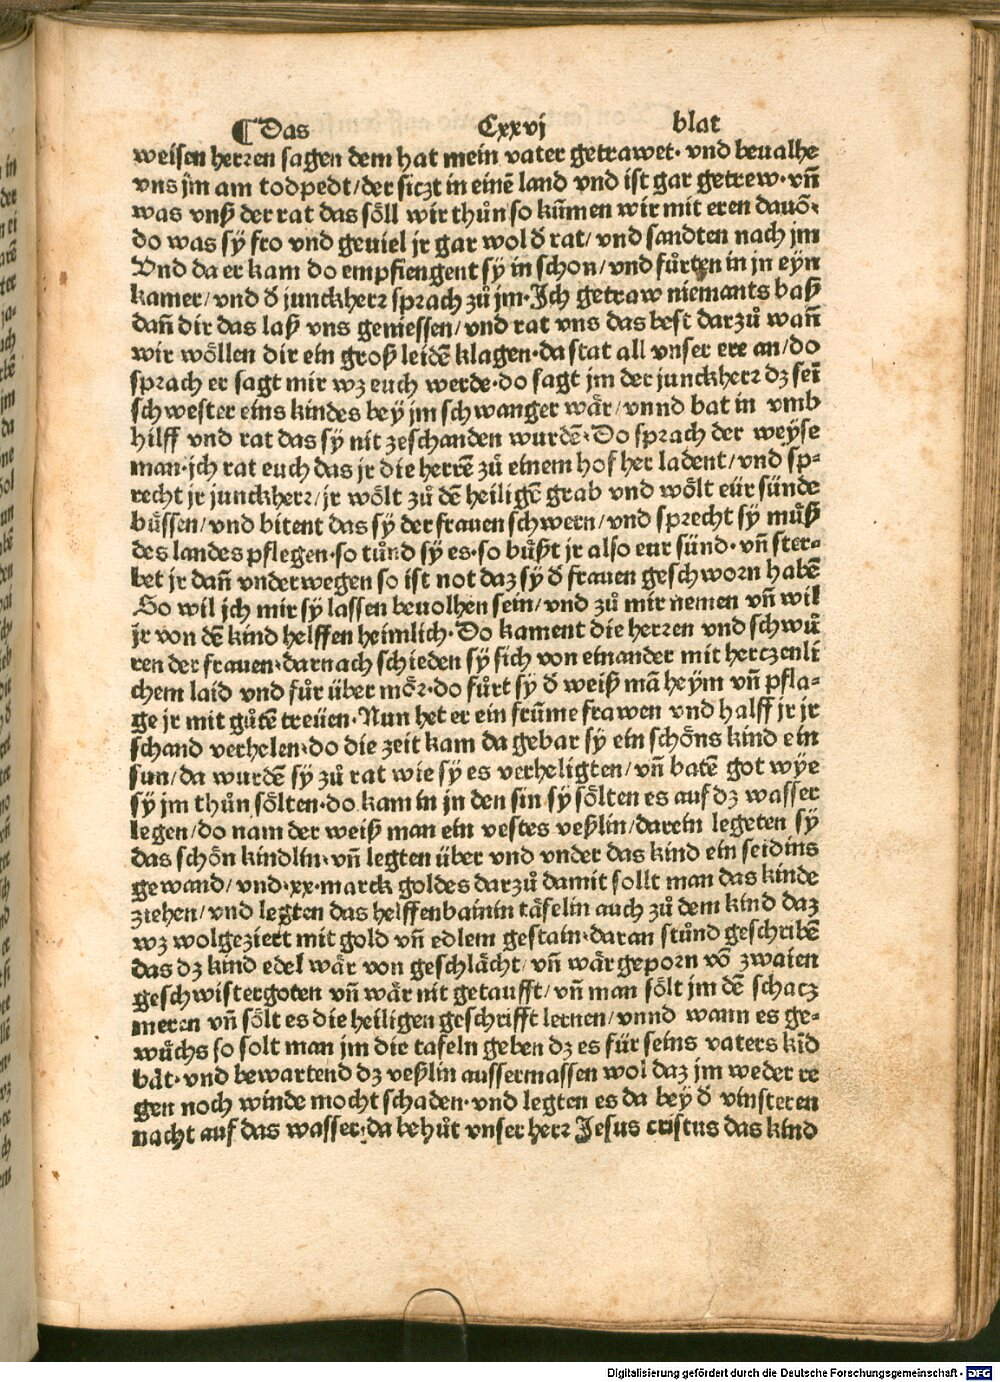 ¶ Das Cxxvj blat
weisen herren sagen dem hat mein vater getrawet· vnd beualhe
vns jm am todpedt/der siczt in einē land vnd ist gar getrew·vn̄
was vnß der rat das söll wir thůn so kūmen wir mit eren dauō·
do was sÿ fro vnd geuiel jr gar wol d̕ rat/ vnd sandten nach jm
Vnd da er kam do empfiengent sÿ in schon/vnd fůrten in jn eyn
kamer/vnd d̕ junckherr sprach zů jm·Ich getraw niemants baß
dan̄ dir das laß vns geniessen/vnd rat vns das best darzů wan̄
wir wöllen dir ein groß leidē klagen·da stat all vnser ere an/do
sprach er sagt mir wz euch werde·do sagt jm der junckherr dz sei̅
schwester eins kindes beÿ jm schwanger wär/vnnd bat in vmb
hilff vnd rat das sÿ nit zeschanden wurdē·Do sprach der weyse
man·jch rat euch das jr die herrē zů einem hof her ladent/vnd sp⸗
recht jr junckherr/jr wölt zů dē heiligē grab vnd wölt eür sünde
büssen/vnd bitent das sÿ der frauen schwern/vnd sprecht sÿ můß
des landes pflegen·so tůnd sÿ es·so bůßt jr also eur sünd·vn̄ ster⸗
bet jr dan̄ vnderwegen so ist not daz sÿ d̕ frauen geschworn habē
So wil jch mir sÿ lassen beuolhen sein/vnd zů mir nemen vn̄ wil
jr von dē kind helffen heimlich·Do kament die herren vnd schwů
ren der frauen·darnach schieden sÿ sich von einander mit herczenli
chem laid vnd fůr über mör·do fůrt sÿ d̕ weiß mā heÿm vn̄ pfla⸗
ge jr mit gůtē treüen·Nun het er ein frūme frawen vnd halff jr jr
schand verhelen·do die zeit kam da gebar sÿ ein schöns kind ein
sun/da wurdē sÿ zů rat wie sÿ es verheligten/vn̄ batē got wÿe
sÿ jm thůn sölten·do kam in jn den sin sÿ sölten es auf dz wasser
legen/do nam der weiß man ein vestes veßlin/darein legeten sÿ
das schön kindlin·vn̄ legten über vnd vnder das kind ein seidins
gewand/vnd·xx·marck goldes darzů damit sollt man das kinde
ziehen/vnd legten das helffenbainin täfelin auch zů dem kind daz
wz wolgeziert mit gold vn̄ edlem gestain·daran stůnd geschribē
das dz kind edel wär von geschlächt/vn̄ wär geporn vō zwaien
geschwistergoten vn̄ wär nit getaufft/vn̄ man sölt jm dē schacz
meren vn̄ sölt es die heiligen geschrifft lernen/vnnd wann es ge⸗
wůchs so solt man jm die tafeln geben dz es für seins vaters kīd
bät·vnd bewartend dz veßlin aussermassen wol daz jm weder re
gen noch winde mocht schaden·vnd legten es da beÿ d̕ vinsteren
nacht auf das wasser·da behůt vnser herr Jesus cristus das kind
Digitalisierung gefördert durch die Deutsche Forschungsgemeinschaft - DFG